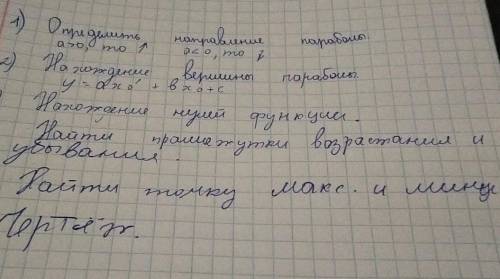 1) Определить направление параболы.
a>0, то ↑ a<0, то ↓
2) Нахождение вершины параболы.
y = ax₀² + bx₀ + c
Нахождение нулей функции.
Найти промежутки возрастания и
убывания.
Найти точку макс. и мин
Чертёж.